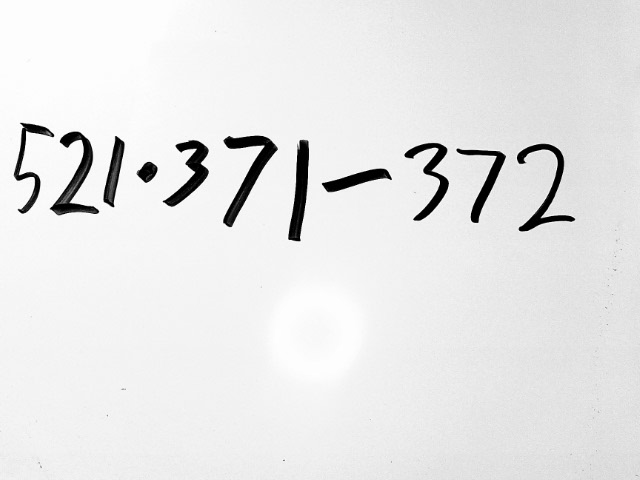 521·371-372